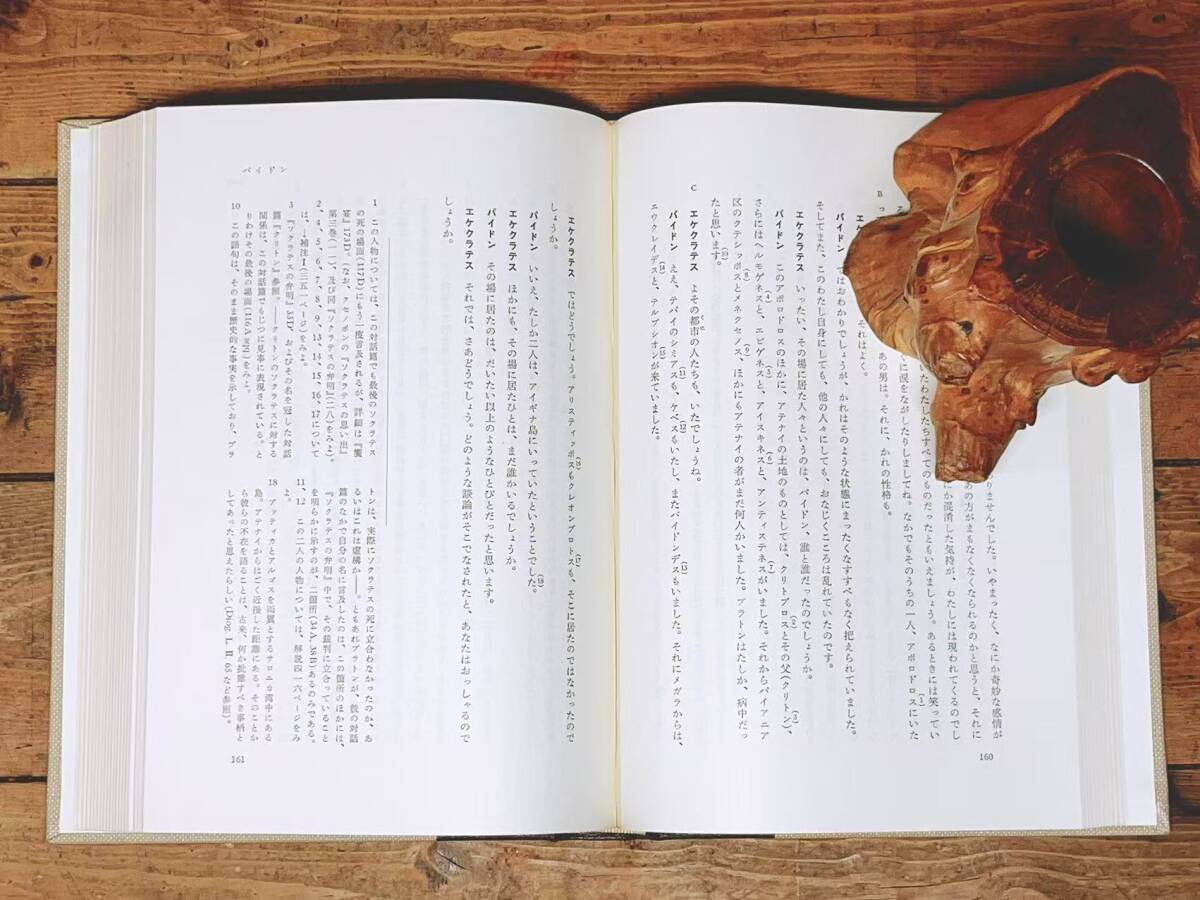 りませんでした。いやまったく、なにか奇妙な感情が
あの方がまもなくなくなられるのかと思うと、それに
にか混淆した気持が、わたしには現われてくるのでし
いたわたしたちすべてのものだったともいえましょう。あるときには笑ってい
に涙をながしたりしましてね。なかでもそのうちの一人、アポロドロス(1)にいた
B っ あの男は。それに、かれの性格も。
エケ それはよく。
パイドン ではおわかりでしょうが、かれはそのような状態にまったくなすすべもなく把えられていました。
そしてまた、このわたし自身にしても、他の人々にしても、おなじくこころは乱れていたのです。
エケクラテス いったい、その場に居た人々というのは、パイドン、誰と誰だったのでしょうか。
パイドン このアポロドロスのほかに、アテナイの土地のものとしては、クリトブロス(2)とその父(クリトン)(3)、
さらにはヘルモゲネス(4)と、エピゲネス(5)と、アイスキネス(6)と、アンティステネス(7)がいました。それからパイアニア
区のクテシッポス(8)とメネクセノス(9)、ほかにもアテナイの者がまだ何人かいました。プラトンはたしか、病中だっ
たと思います。(10)
C エケクラテス よその都市(くに)の人たちも、いたでしょうね。
パイドン ええ、テバイのシミアス(11)も、ケベス(12)もいたし、またパイドンデス(13)もいました。それにメガラからは、
エウクレイデス(14)と、テルプシオン(15)が来ていました。
160
パイドン
エケクラテス ではどうでしょう。アリスティッポス(16)もクレオンブロトス(17)も、そこに居たのではなかったので
しょうか。
パイドン いいえ、たしか二人は、アイギナ島にいっていたということでした。(18)
エケクラテス ほかにも、その場に居たひとは、まだ誰かいるでしょうか。
パイドン その場に居たのは、だいたい以上のようなひとびとだったと思います。
エケクラテス それでは、さあどうでしょう。どのような談論がそこでなされたと、あなたはおっしゃるので
しょうか。
1 この人物については、この対話篇でも最後のソクラテス
の死の場面(117D)にもう一度言及されるが、詳細は『饗
宴』173D。(なお、クセノポンの『ソクラテスの思い出』
第三巻(一一)及び同『ソクラテスの弁明』(二八)をみよ)。
2、4、5、6、7、8、9、13、14、15、16、17 について
は、→補注Ⅰ(三五一ページ)をみよ。
3 『ソクラテスの弁明』33D、およびその名を冠した対話
篇『クリトン』参照。――クリトンのソクラテスに対する
関係は、この対話篇でもじつに見事に表現されている。と
りわけその最後の場面(116A sqq.)をみよ。
10 この語句は、そのまま歴史的な事実を示しており、プラ
トンは、実際にソクラテスの死に立合わなかったのか、あ
るいはこれは虚構か――。ともあれプラトンが、彼の対話
篇のなかで自分の名に言及したのは、この箇所のほかには、
『ソクラテスの弁明』中で、その裁判に立合っていること
を明らかに示すのが、二箇所(34A, 38B)あるのみである。
11、12 この二人の人物については、解説四一六ページをみ
よ。
18 アッティカとアルゴスを両翼とするサロニカ湾中にある
島。アテナイからはごく近接した距離にある。そのことか
ら彼らの不在を語ることは、古来、何か批難すべき事柄と
してあったと思えたらしい(Diog. L. II. 65 など参照)。
161